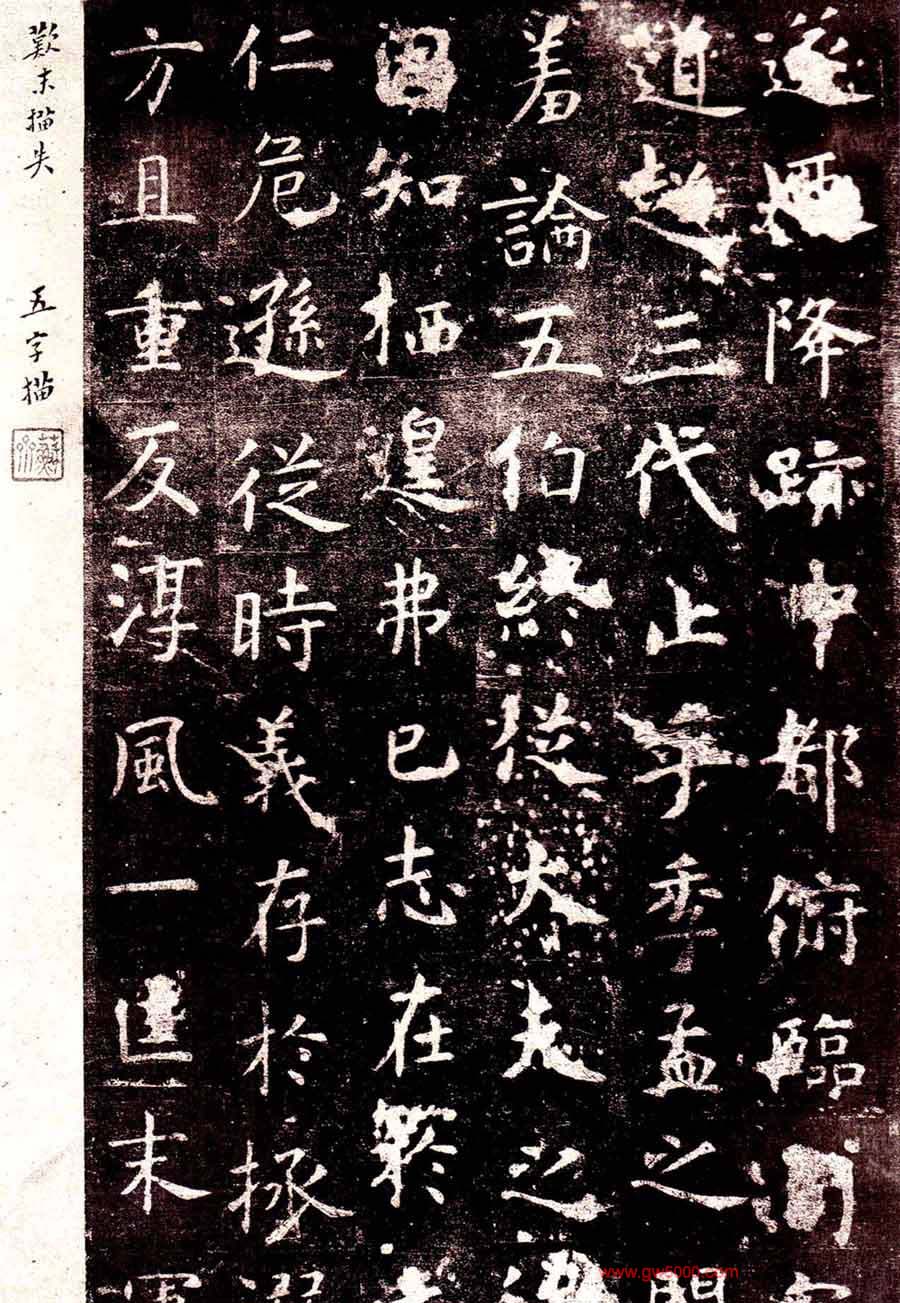 遂
降跡中都俯臨
道 三代止乎季孟之間
羞論五伯終從大夫之後
固知栖遑弗已志在
仁危遜從時義存於拯溺
方且重反淳風一匡末運
歎末描失 五字描
www.gw5000.com